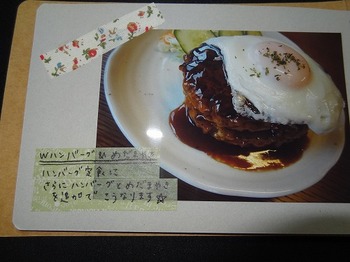 Wハンバーグ&めだまやき
ハンバーグ定食に
さらにハンバーグとめだまやき
を追加で こうなります☆